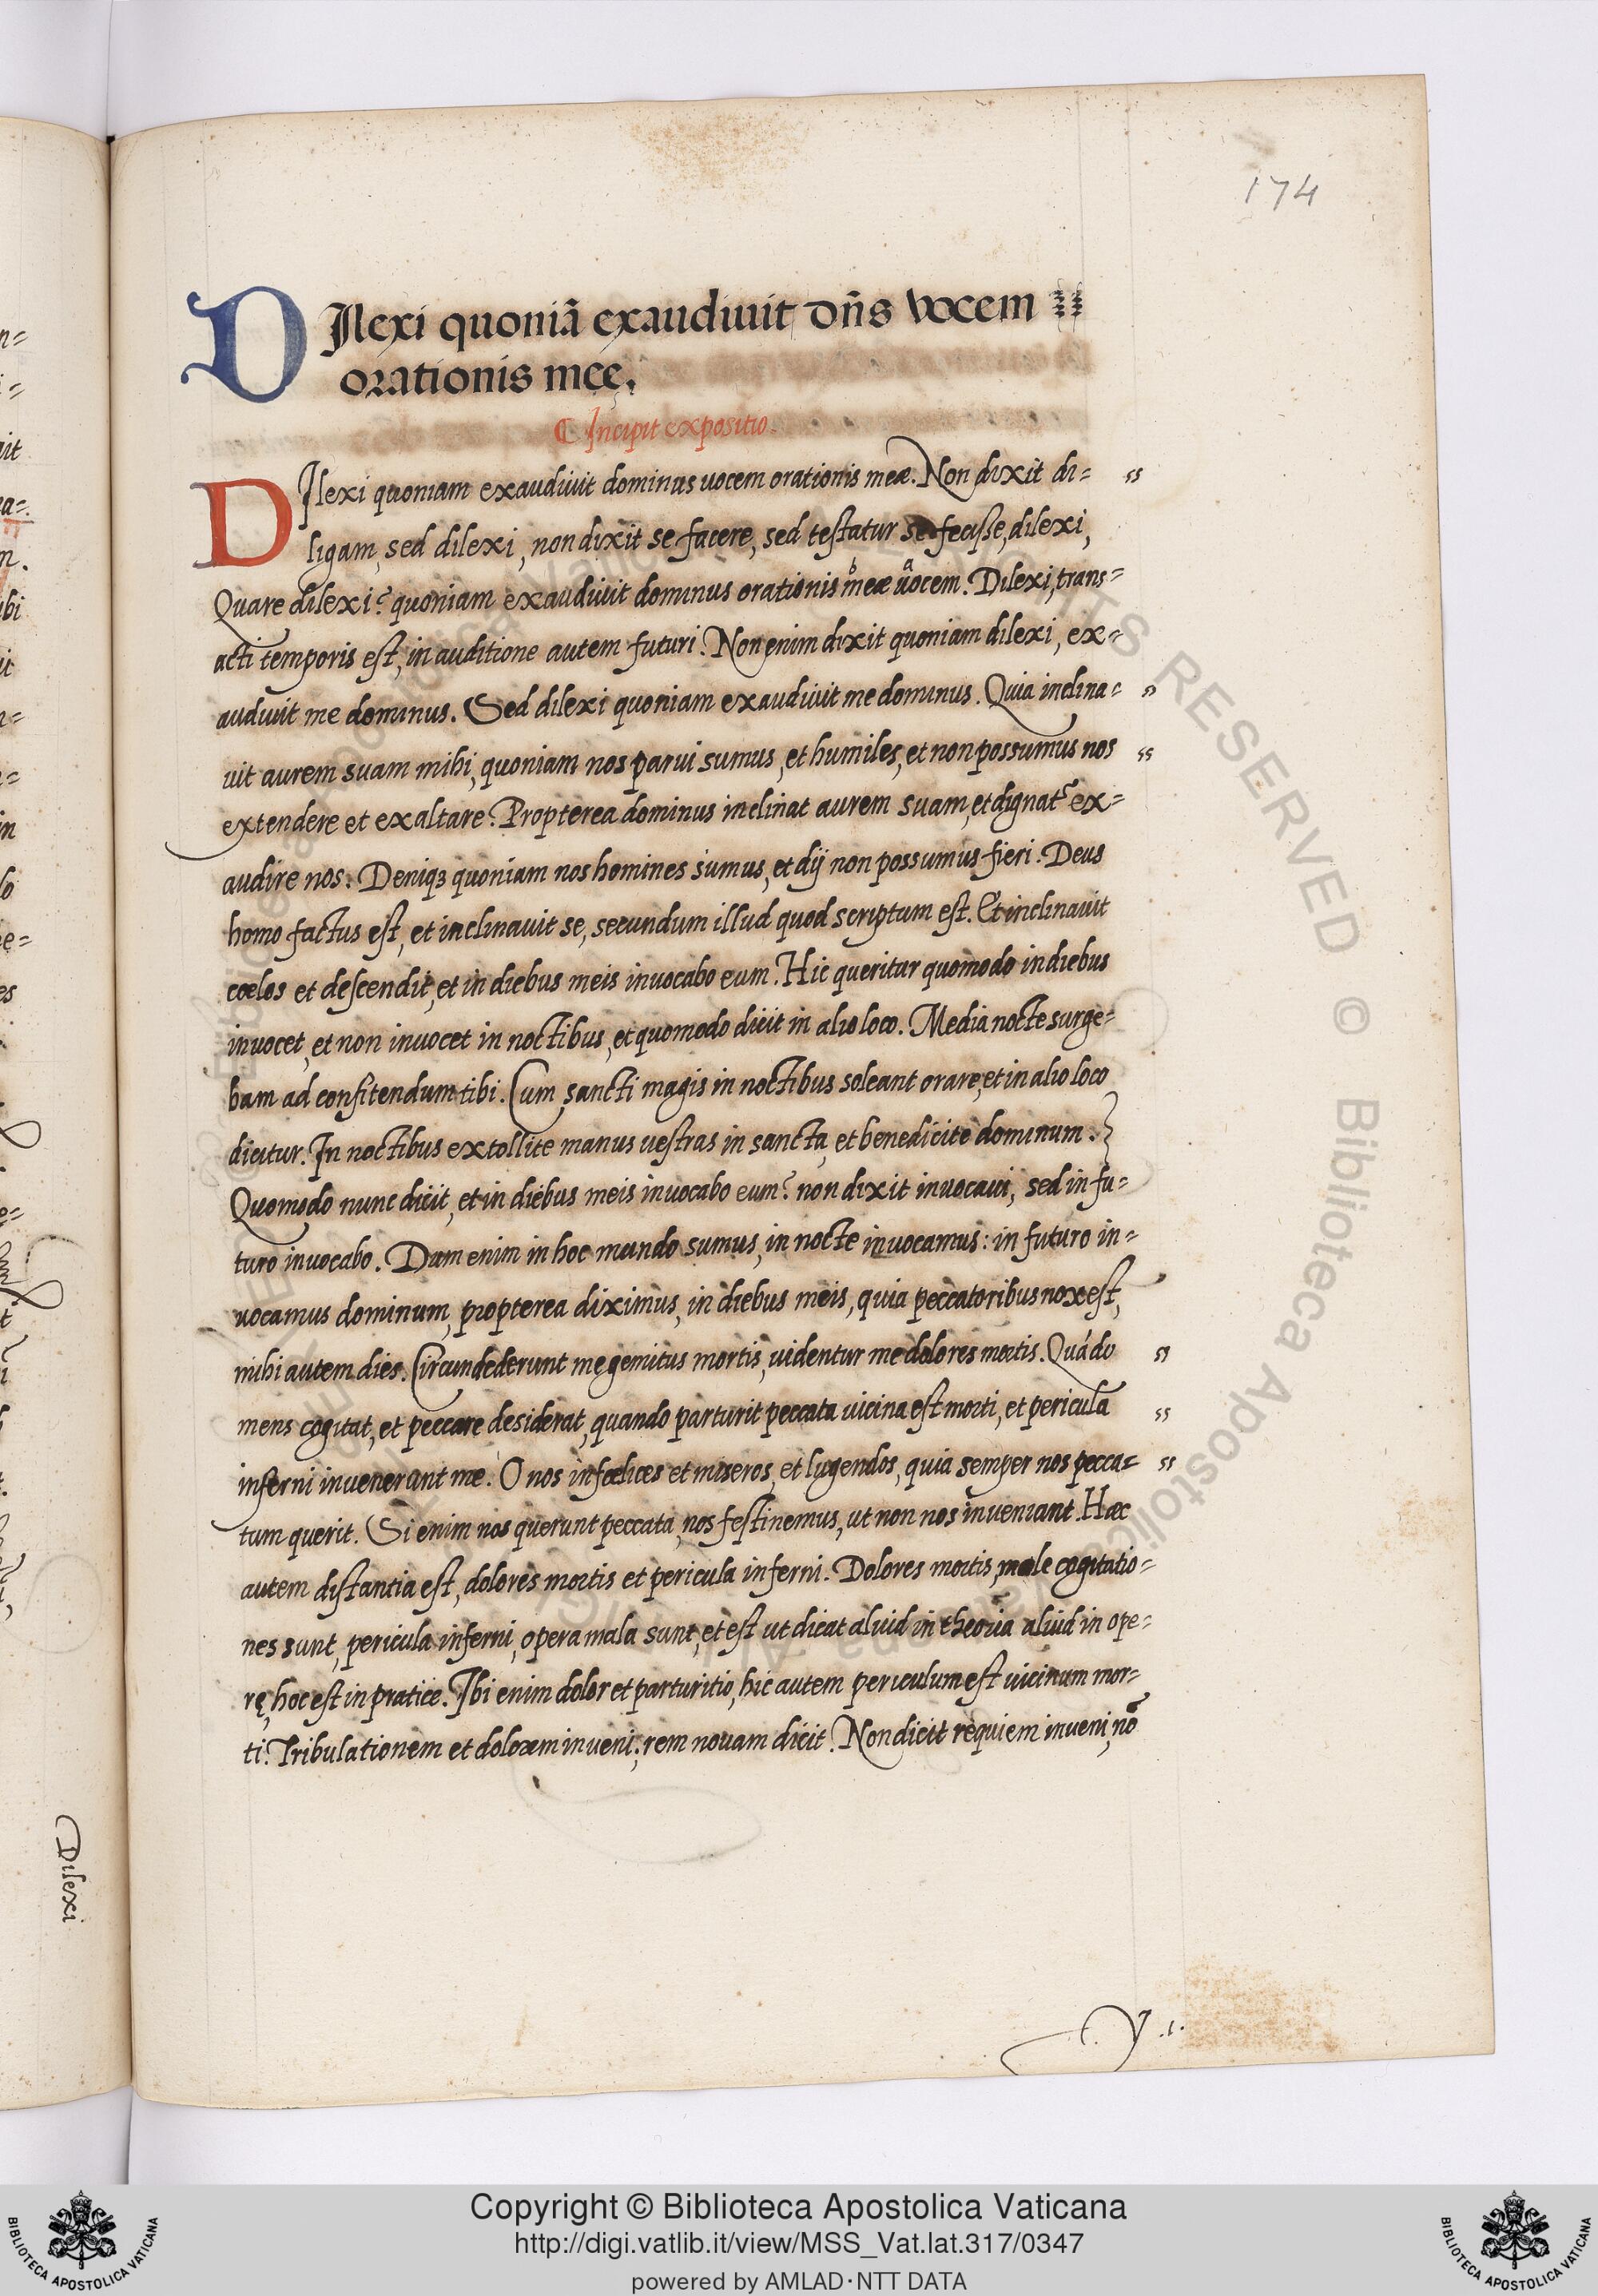 174
DIlexi quoniā exaudiuit dn̄s vocem
orationis meę.
Incipit expositio.
DIlexi quoniam exaudiuit dominus uocem orationis meæ. Non dixit di=
ligam, sed dilexi, non dixit se facere, sed testatur se fecisse, dilexi,
Quare dilexi? quoniam exaudiuit dominus orationis meæ uocem. Dilexi, trans=
acti temporis est, in auditione autem futuri. Non enim dixit quoniam dilexi, ex=
audiuit me dominus. Sed dilexi quoniam exaudiuit me dominus. Quia inclina=
uit aurem suam mihi, quoniam nos parui sumus, et humiles, et non possumus nos
extendere et exaltare. Propterea dominus inclinat aurem suam, et dignat᷑ ex=
audire nos. Deniqꝫ quoniam nos homines sumus, et dij non possumus fieri. Deus
homo factus est, et inclinauit se, secundum illud quod scriptum est. Et inclinauit
cœlos et descendit, et in diebus meis inuocabo eum. Hic queritur quomodo in diebus
inuocet, et non inuocet in noctibus, et quomodo dicit in alio loco. Media nocte surge=
bam ad confitendum tibi. Cum sancti magis in noctibus soleant orare, et in alio loco
dicitur. In noctibus extollite manus uestras in sancta, et benedicite dominum.
Quomodo nunc dicit, et in diebus meis inuocabo eum? non dixit inuocaui, sed in fu=
turo inuocabo. Dum enim in hoc mundo sumus, in nocte inuocamus: in futuro in=
uocamus dominum, propterea diximus, in diebus meis, quia peccatoribus nox est,
mihi autem dies. Circundederunt me gemitus mortis, uidentur me dolores mortis. Quādo
mens cogitat, et peccare desiderat, quando parturit peccata uicina est morti, et pericula
inferni inuenerunt me. O nos infœlices et miseros, et lugendos, quia semper nos pecca=
tum querit. Si enim nos querunt peccata, nos festinemus, ut non nos inueniant. Hæc
autem distantia est, dolores mortis et pericula inferni. Dolores mortis, male cogitatio=
nes sunt, pericula inferni, opera mala sunt, et est ut dicat aliud in theoria aliud in ope=
rę, hoc est in pratice. Ibi enim dolor et parturitio, hic autem periculum est uicinum mor=
ti. Tribulationem et dolorem inueni; rem nouam dicit. Non dicit requiem inueni, nō
y .i.
Dilexi
Copyright © Biblioteca Apostolica Vaticana
http://digi.vatlib.it/view/MSS_Vat.lat.317/0347
powered by AMLAD·NTT DATA
BIBLIOTECA APOSTOLICA VATICANA
BIBLIOTECA APOSTOLICA VATICANA